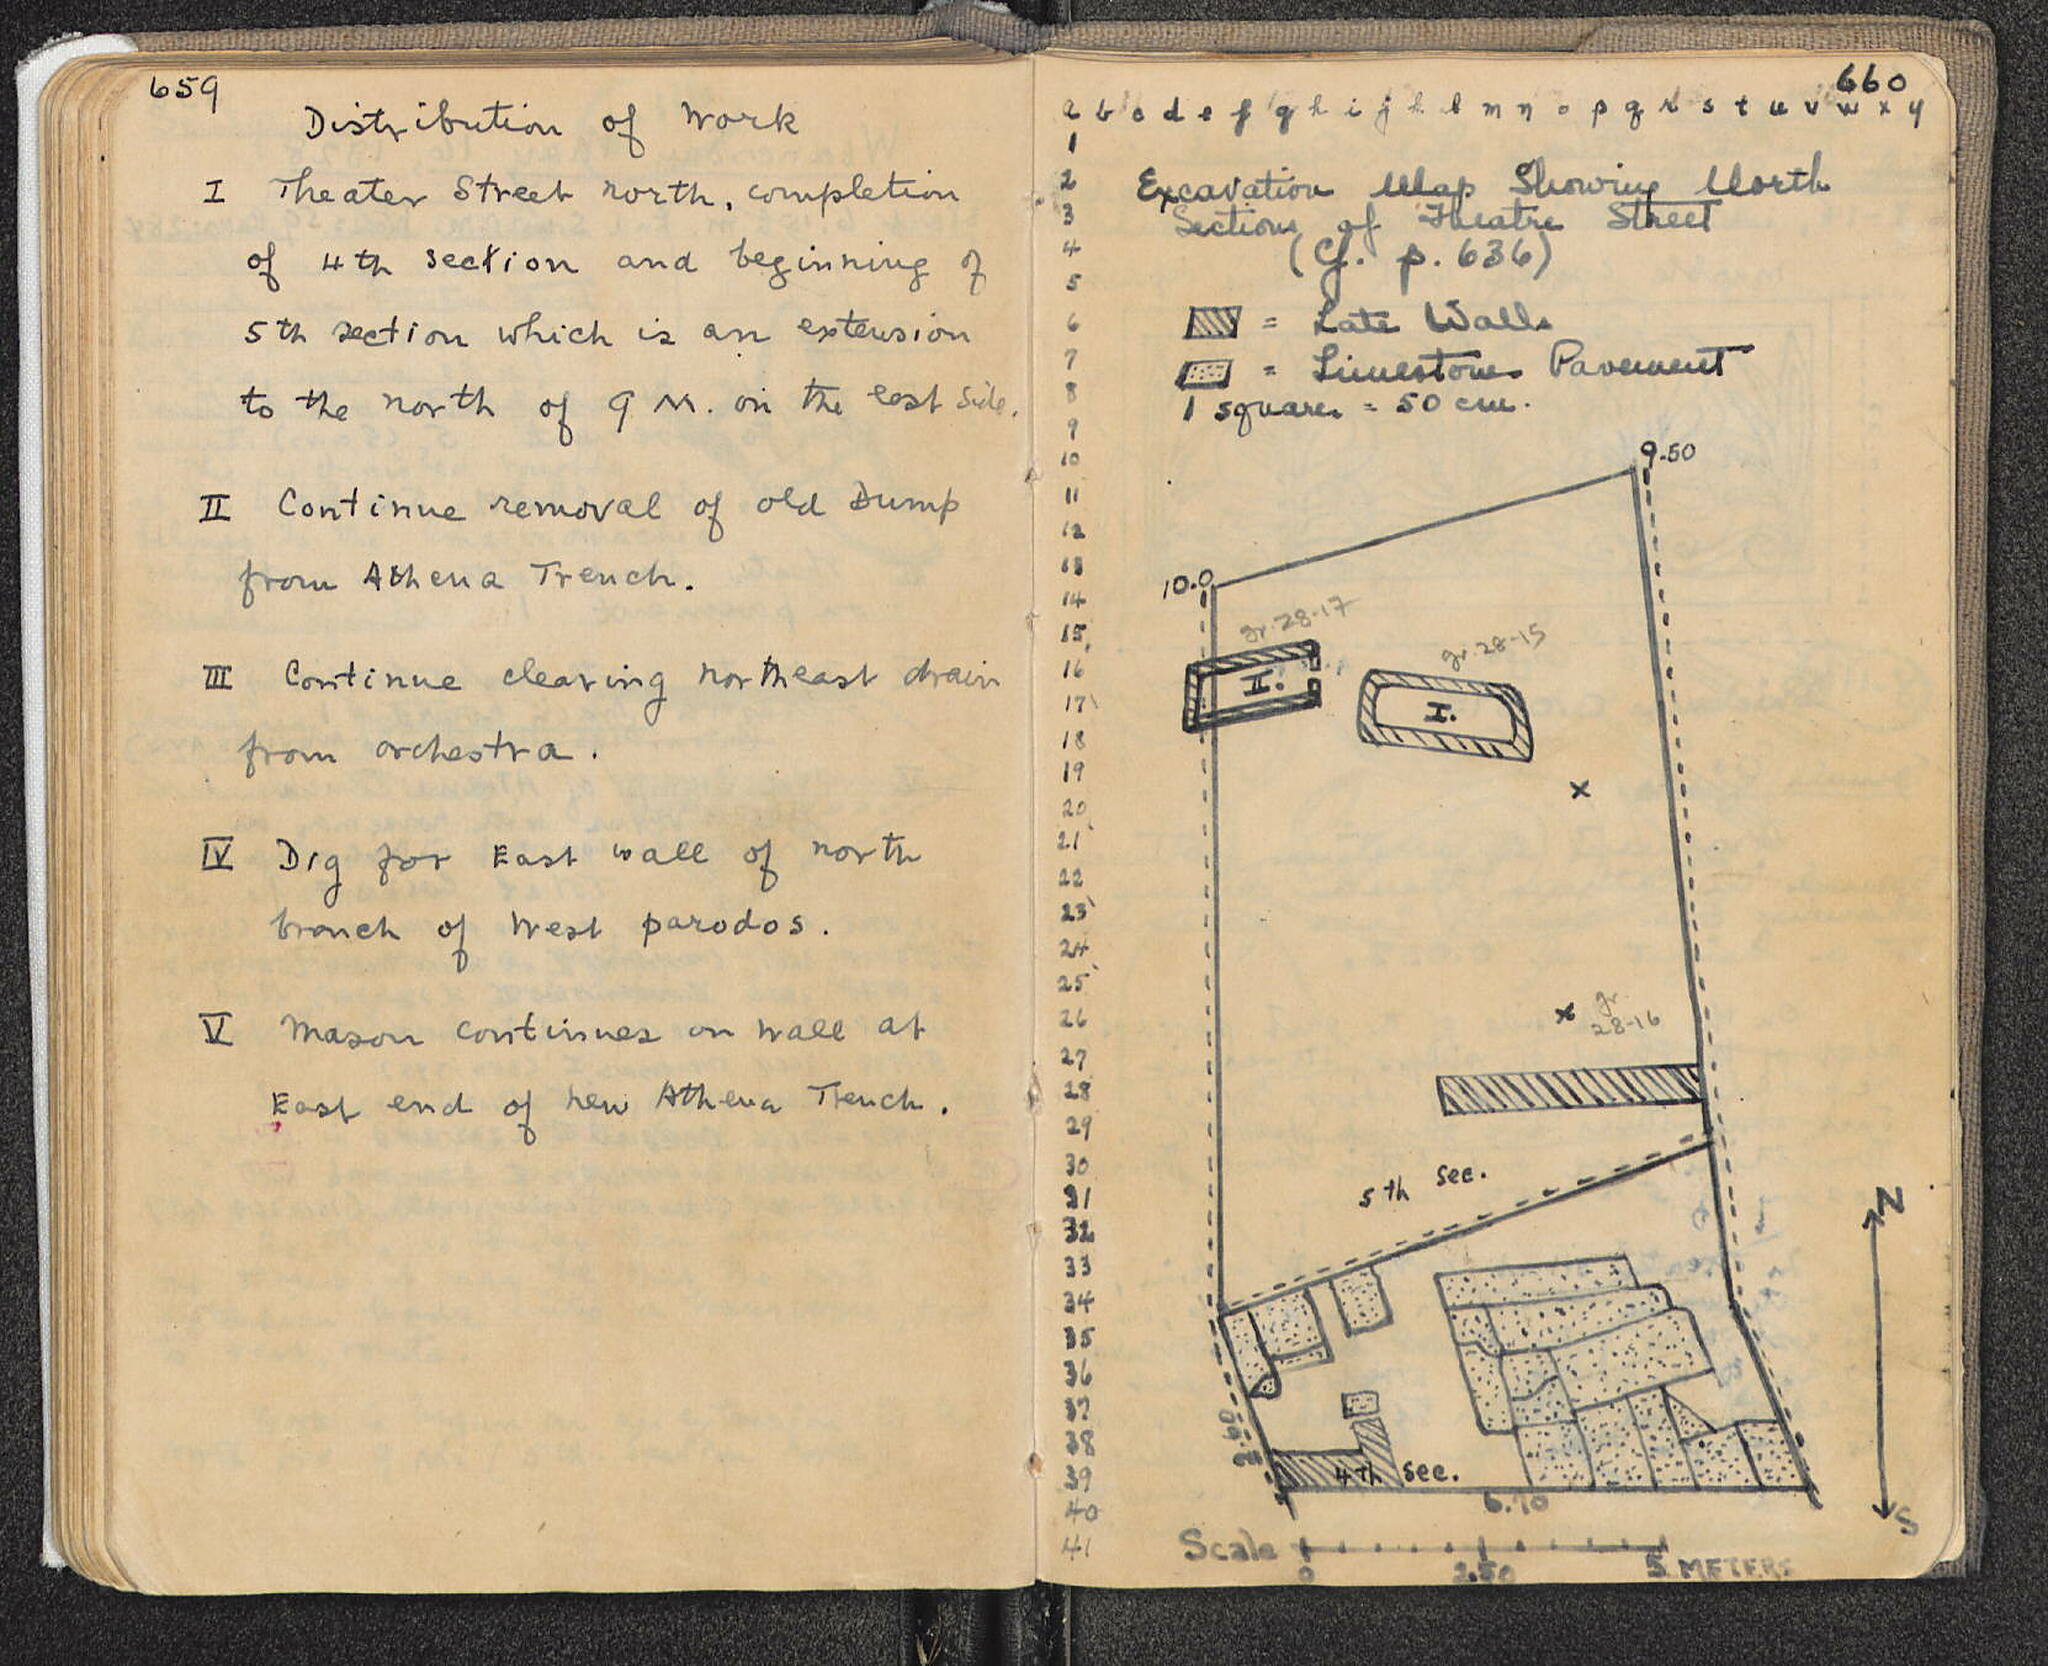 659
Distribution of Work
I Theater Street north, completion
of 4th section and beginning of
5th section which is an extension
to the north of 9 M. on the east side.
II Continue removal of old Dump
from Athena Trench.
III Continue clearing northeast drain
from orchestra.
IV Dig for East wall of north
branch of West parodos.
V Mason continues on wall at
East end of new Athena Trench.
660
a b c d e f g h i j k l m n o p q r s t u v w x y
1
2
3
4
5
6
7
8
9
10
11
12
13
14
15
16
17
18
19
20
21
22
23
24
25
26
27
28
29
30
31
32
33
34
35
36
37
38
39
40
41
Excavation Map Showing North
Sections of Theatre Street
(Cf. p. 636)
= Late Walls
= Limestone Pavement
1 square = 50 cm.
9.50
10.0
gr. 28-17
gr. 28-15
II.
I.
x
x gr.
28-16
5th sec.
N
4th sec.
6.70
S
Scale
0 2.50 5 METERS